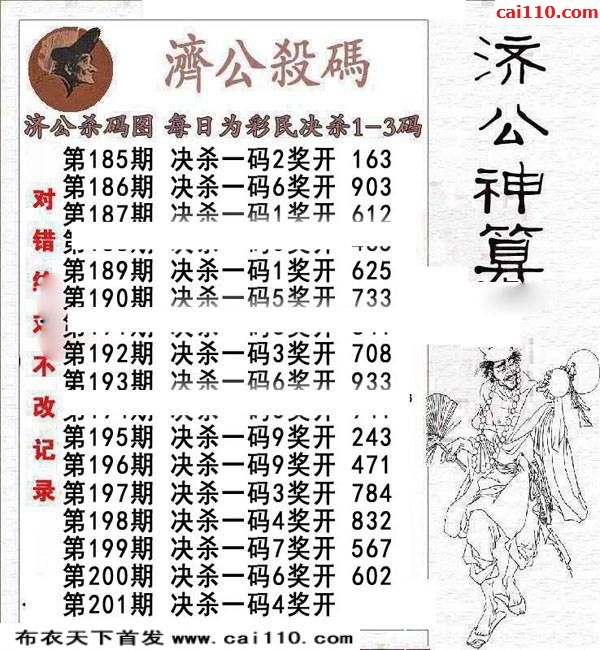 cai110.com
濟公殺碼
济公神算
济公杀码图 每日为彩民决杀1-3码
第185期 决杀一码2奖开 163
第186期 决杀一码6奖开 903
第187期 决杀一码1奖开 612
第189期 决杀一码1奖开 625
第190期 决杀一码5奖开 733
第192期 决杀一码3奖开 708
第193期 决杀一码6奖开 933
第195期 决杀一码9奖开 243
第196期 决杀一码9奖开 471
第197期 决杀一码3奖开 784
第198期 决杀一码4奖开 832
第199期 决杀一码7奖开 567
第200期 决杀一码6奖开 602
第201期 决杀一码4奖开
对错 不改记录
布衣天下首发 www.cai110.com